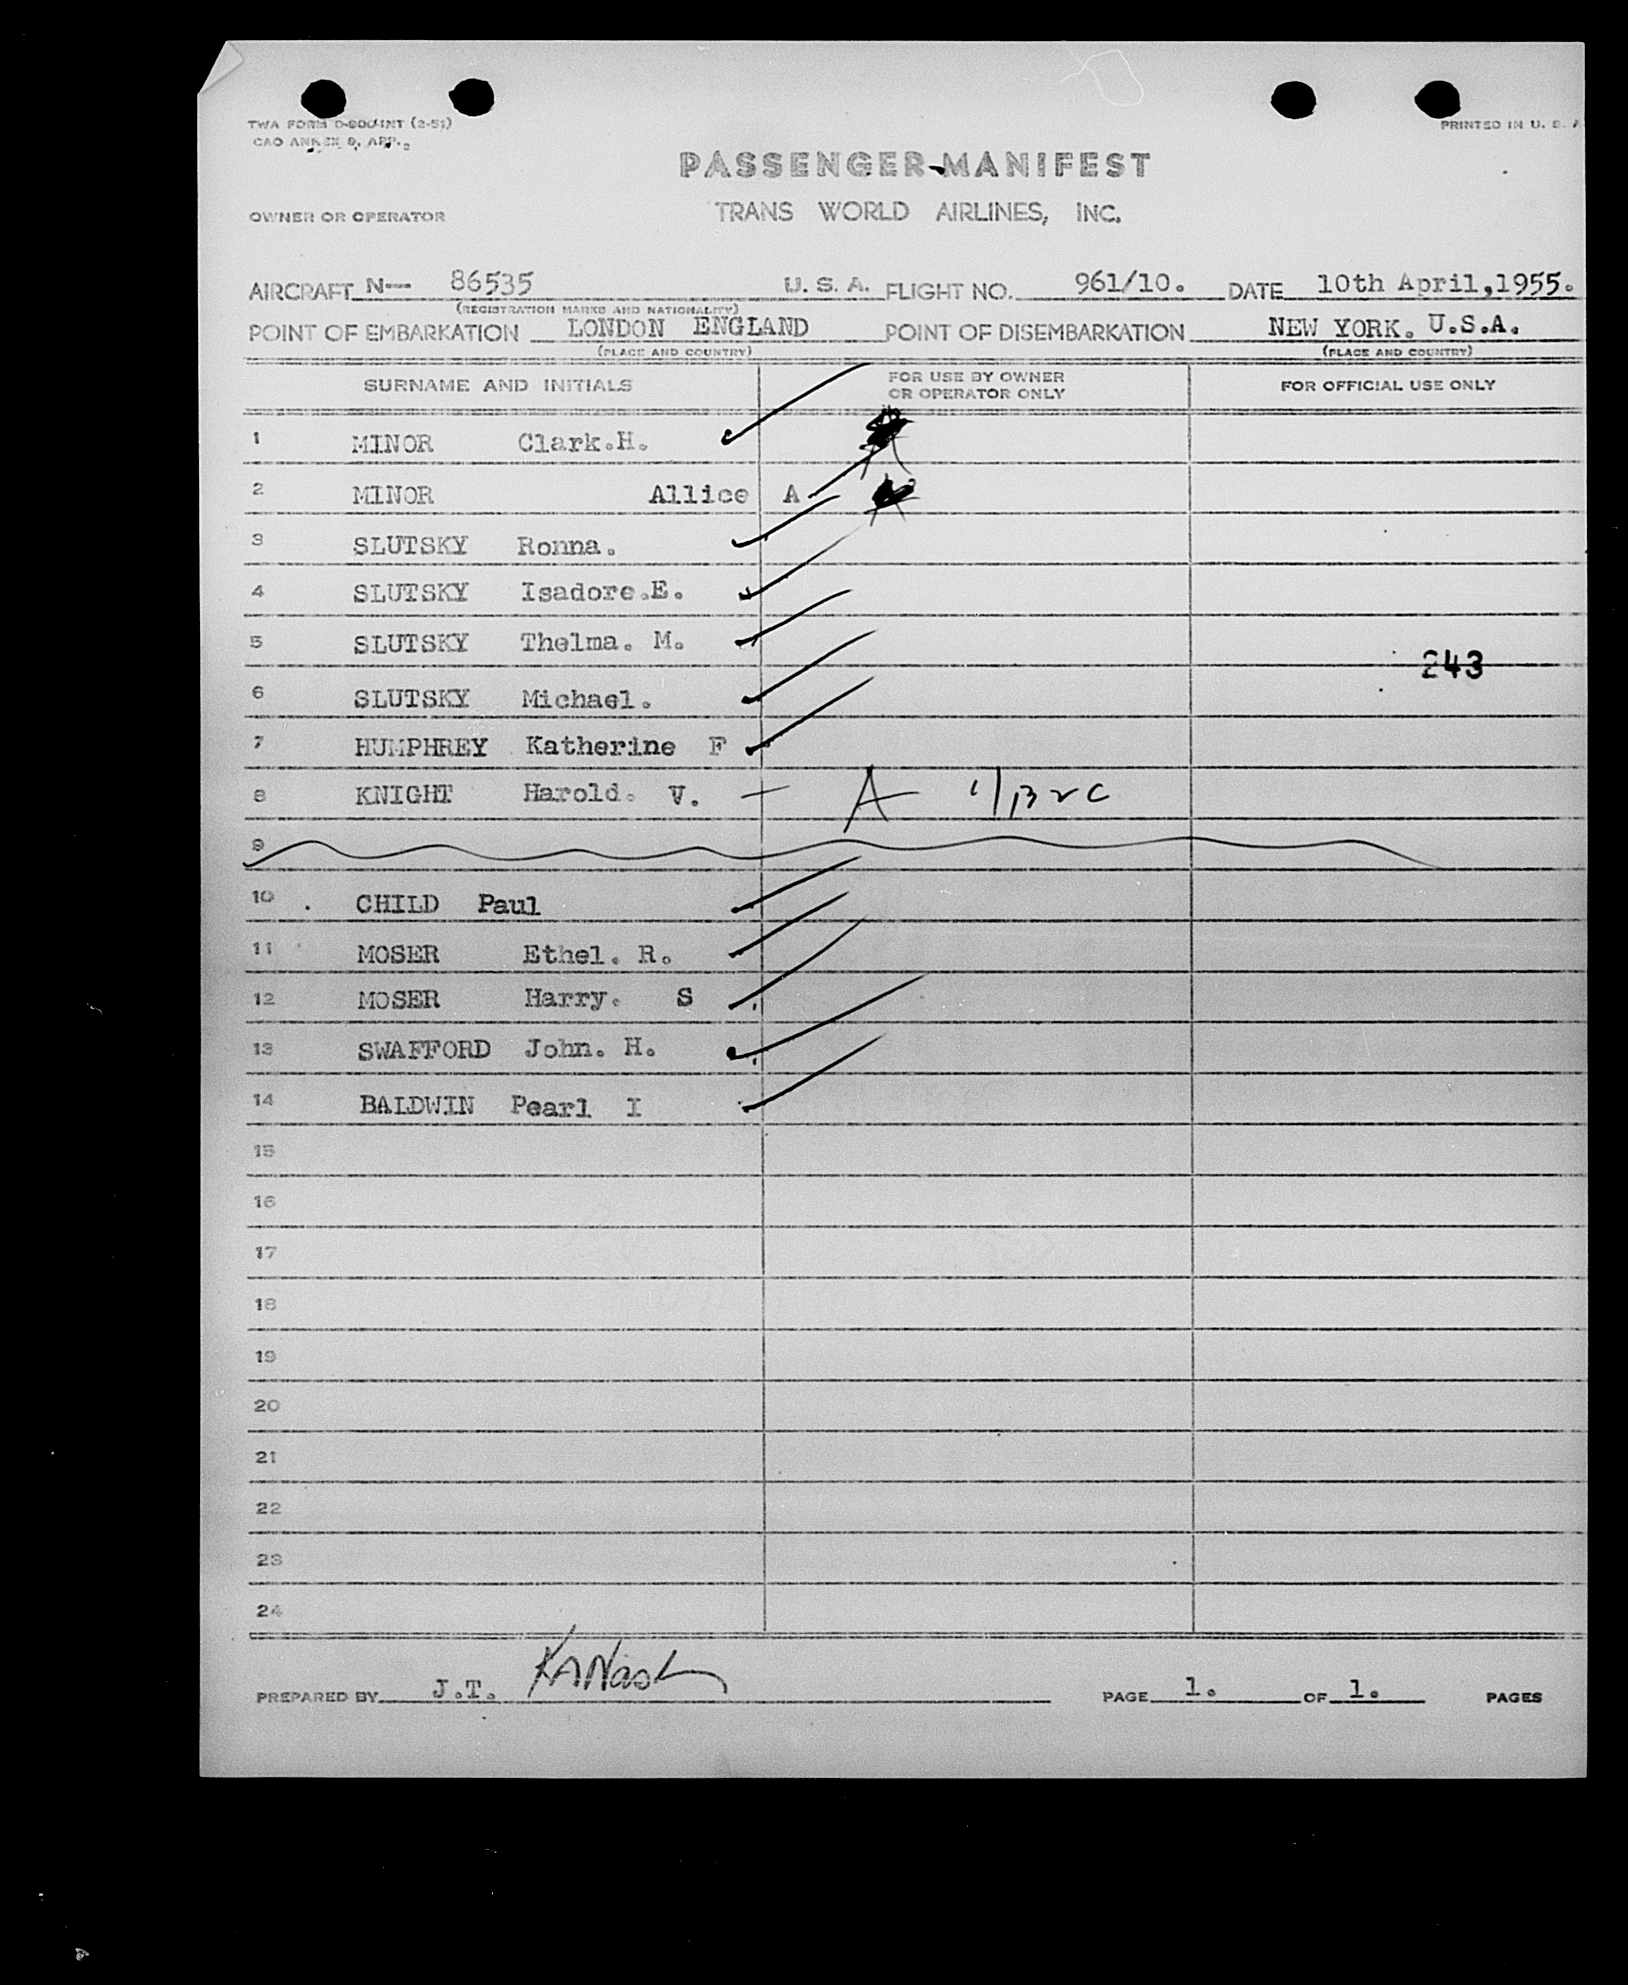 TWA FORM O-800-INT (2-51)
PRINTED IN U. S. A
CAO ANNEX 9, APP.
PASSENGER MANIFEST
OWNER OR OPERATOR
TRANS WORLD AIRLINES, INC.
AIRCRAFT N-- 86535 U. S. A. FLIGHT NO. 961/10. DATE 10th April,1955.
(REGISTRATION MARKS AND NATIONALITY)
POINT OF EMBARKATION LONDON ENGLAND POINT OF DISEMBARKATION NEW YORK. U.S.A.
(PLACE AND COUNTRY) (PLACE AND COUNTRY)
SURNAME AND INITIALS FOR USE BY OWNER OR OPERATOR ONLY FOR OFFICIAL USE ONLY
1 MINOR Clark.H.
2 MINOR Allice A
3 SLUTSKY Ronna.
4 SLUTSKY Isadore.E.
5 SLUTSKY Thelma. M.
243
6 SLUTSKY Michael.
7 HUMPHREY Katherine F
8 KNIGHT Harold. V. A
9
10 CHILD Paul
11 MOSER Ethel. R.
12 MOSER Harry. S
13 SWAFFORD John. H.
14 BALDWIN Pearl I
15
16
17
18
19
20
21
22
23
24
PREPARED BY J.T. KANash PAGE 1. OF 1. PAGES